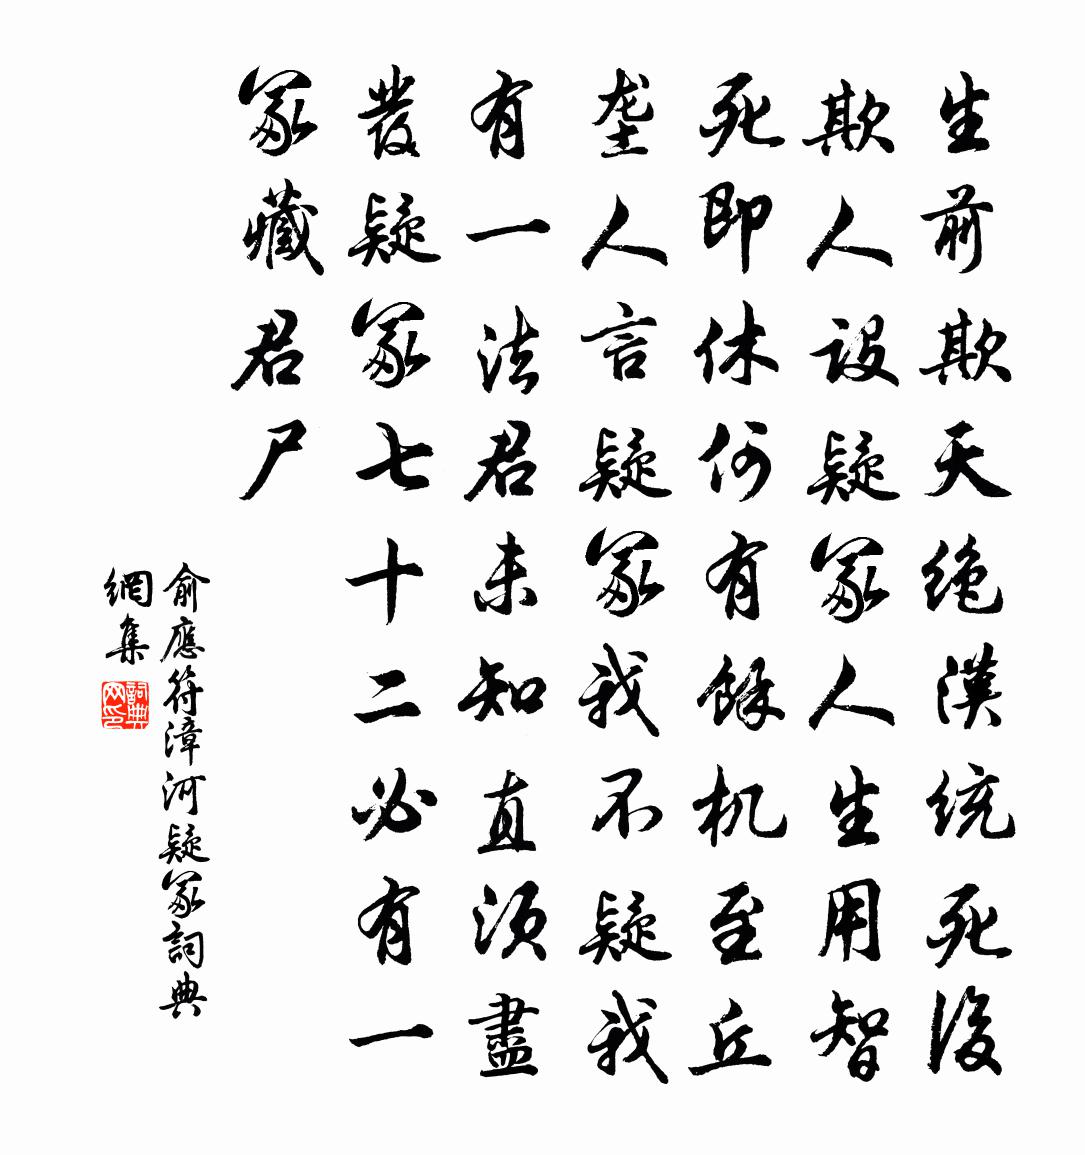 生前欺天绝漢统死後
欺人設疑冢人生用智
死即休何有餘机至丘
垄人言疑冢我不疑我
有一法君未知直须盡
發疑冢七十二必有一
冢藏君尸
俞應符漳河疑冢詞典
網集
詞典
网